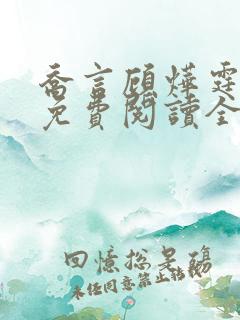 喬言顧燁霆
免費閱讀全
回憶總是殤
未经同意禁止转载